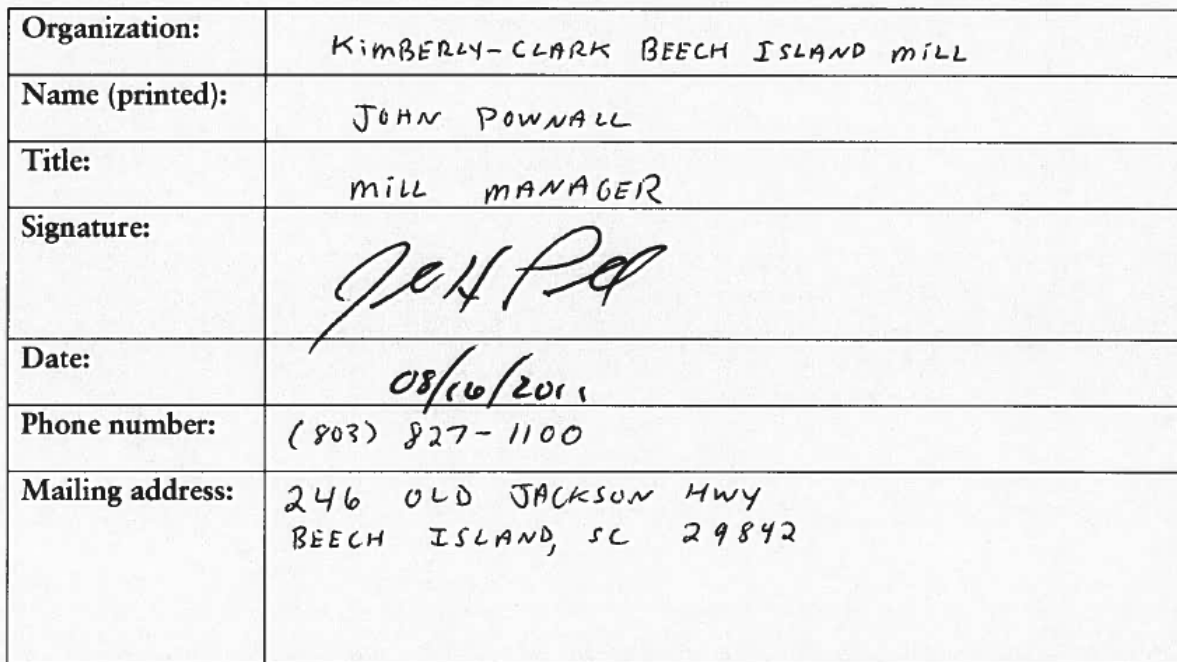 Organization: KiMBERLY-CLARK BEECH ISLAND MiLL
Name (printed): JOHN POWNALL
Title: MiLL MANAGER
Signature:
Date: 08/16/2011
Phone number: (803) 827-1100
Mailing address: 246 OLD JACKSON HWY
BEECH ISLAND, SC 29842